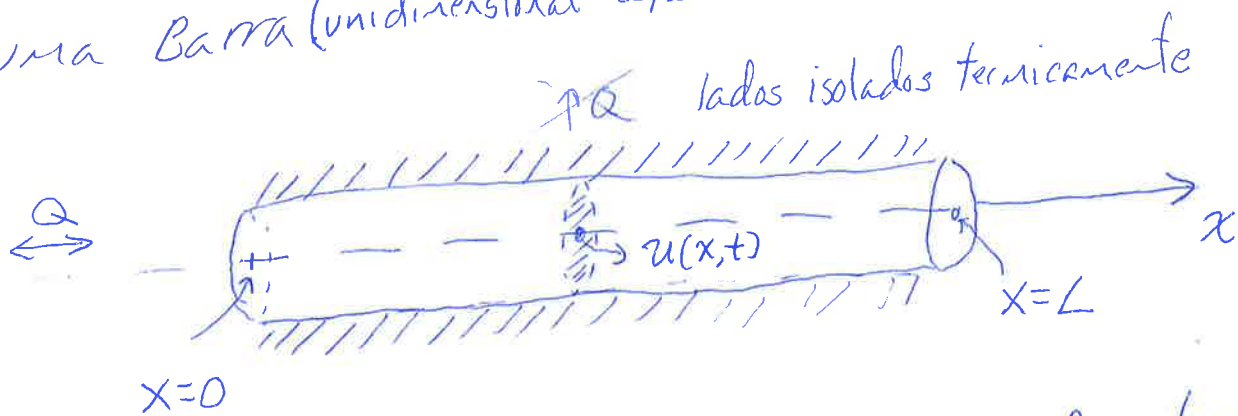 uma Barra (unidimensional
Q lados isolados termicamente
Q
u(x,t)
x
x=L
x=0